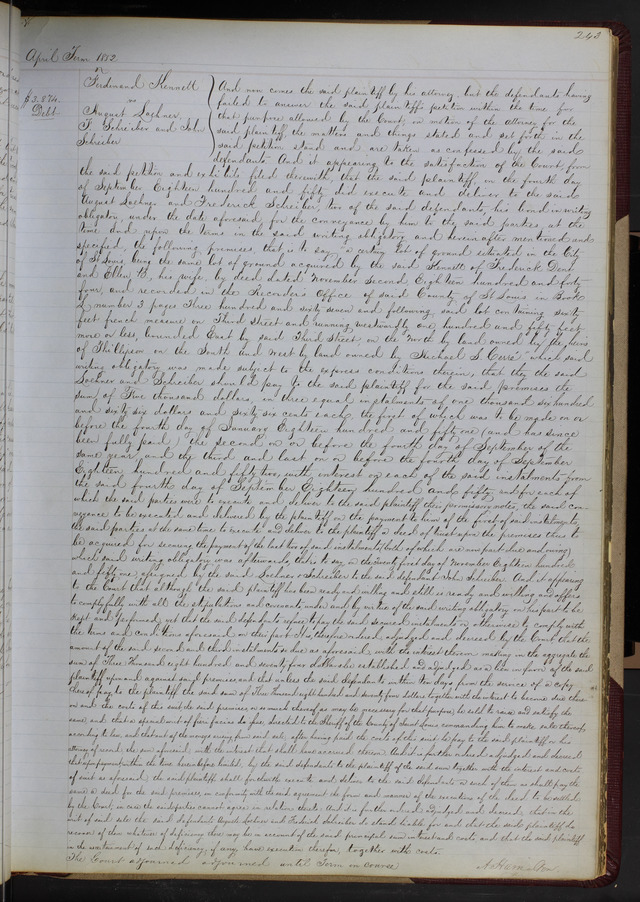 242
April Term 1852
Ferdinand Kennett
vs
August Lochner,
F. Schreiber and John
Schreiber
$3.874.
Debt
And now comes the said plaintiff by his attorney, but the defendants having
failed to answer the said plaintiff's petition within the time for
that purpose allowed by the Court, on motion of the attorney for the
said plaintiff the matters and things stated and set forth in the
said petition stand and are taken as confessed by the said
defendants. And it appearing to the satisfaction of the Court from
the said petition and exhibits filed therewith that the said plaintiff on the fourth day
of September Eighteen hundred and fifty did execute and deliver to the said
August Lochner and Frederick Schreiber, two of the said defendants, his bond in writing
obligatory, under the date aforesaid, for the conveyance by him to the said parties, at the
time and upon the terms in the said writing obligatory and herein after mentioned and
specified, the following premises, that is to say, a certain lot of ground situated in the City
of St Louis, being the same lot of ground acquired by the said Kennett of Frederick Dent
and Ellen B, his wife, by deed dated November second Eighteen hundred and forty
four, and recorded in the Recorder's Office of said County of St Louis in Book
number 3 pages three hundred and sixty seven and following, said lot containing sixty
feet french measure on Third Street and running westwardly one hundred and fifty feet
more or less, bounded East by said Third Street, on the North by land owned by the heirs
of on the South and West by land owned by Michael S. Cerré which said
writing obligatory was made subject to the express conditions therein, that they the said
Lochner and Schreiber should pay to the said plaintiff for the said premises the
sum of Five thousand dollars, in three equal instalments of one thousand six hundred
and sixty six dollars and sixty six cents each, the first of which was to be made on or
before the fourth day of January Eighteen hundred and fifty one (and has since
been fully paid) the second on or before the fourth day of September of the
same year and the third and last on or before the fourth day of September
Eighteen hundred and fifty two, with interest on each of the said instalments from
the said fourth day of September Eighteen hundred and fifty and for each of
which the said parties were to execute and deliver to the said plaintiff their promissory notes, the said con-
veyance to be executed and delivered by the plaintiff on the payment to him of the first of said instalments,
the said parties at the same time to execute and deliver to the plaintiff a deed of trust upon the premises thus to
be acquired for securing the payment of the last two of said instalments (both of which are now past due and owing)
which said writing obligatory was afterwards, that is to say on the twenty first day of November Eighteen hundred
and fifty one, assigned by the said Lochner & Schreiber to the said defendant John Schreiber. And it appearing
to the Court that although the said plaintiff has been ready and willing and still is ready and willing and offers
to comply fully with all the stipulations and covenants under and by virtue of the said writing obligatory on his part to be
kept and performed, yet that the said defendants refuse to pay the said second instalments or otherwise to comply with
the terms and conditions aforesaid on their part. It is therefore ordered, adjudged and decreed by the Court that the
amount of the said second and third instalments so due as aforesaid with the interest thereon making in the aggregate the
sum of Three Thousand eight hundred and seventy four dollars be established and adjudged as a lien in favor of the said
plaintiff upon and against said premises and that unless the said defendants within ten days from the service of a copy
hereof pay to the plaintiff the said sum of Three Thousand eight hundred and seventy four dollars together with the interest to become due there
on and the costs of this suit, the said premises, or so much thereof as may be necessary for that purpose, be sold to raise and satisfy the
same, and that a special writ of fieri facias do issue directed to the Sheriff of the County of Saint Louis commanding him to make sale thereof,
according to law, and that out of the moneys arising from said sale, after having paid the costs of this suit he pay to the said plaintiff or his
attorney of record the sum aforesaid with the interest that shall have accrued thereon. And it is further ordered adjudged and decreed
that upon payment within the time hereinbefore limited, by the said defendants to the plaintiff of the said sum together with the interest and costs
of suit as aforesaid, the said plaintiff shall forthwith execute and deliver to the said defendants or such of them as shall pay the
same a deed for the said premises, in conformity with the said agreement the form and manner of the execution of the deed to be settled
by the Court, in case the said parties cannot agree in relation thereto. And it is further ordered adjudged and decreed, that in the
event of said sale the said defendants August Lochner and Frederick Schreiber do stand liable for and that the said plaintiff do
recover of them whatever of deficiency there may be on account of the said principal sum interest and costs and that the said plaintiff
in the event of such deficiency, if any, have execution therefor, together with costs.
The Court adjourned adjourned until Term in course
A Hamilton